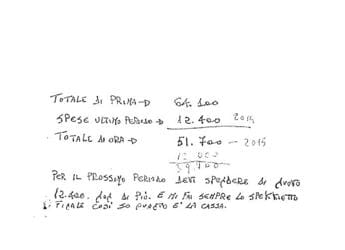 TOTALE DI PRIMA → 64.100
SPESE ULTIMO PERIODO → 12.400 2015
TOTALE DI ORA → 51.700 — 2015
39.700
PER IL PROSSIMO PERIODO DEVI SPENDERE DI NUOVO
12.400. NON DI PIÙ. E MI FAI SEMPRE LO SPECCHIETTO
FINALE COSÌ SO QUANTO È LA CASSA.